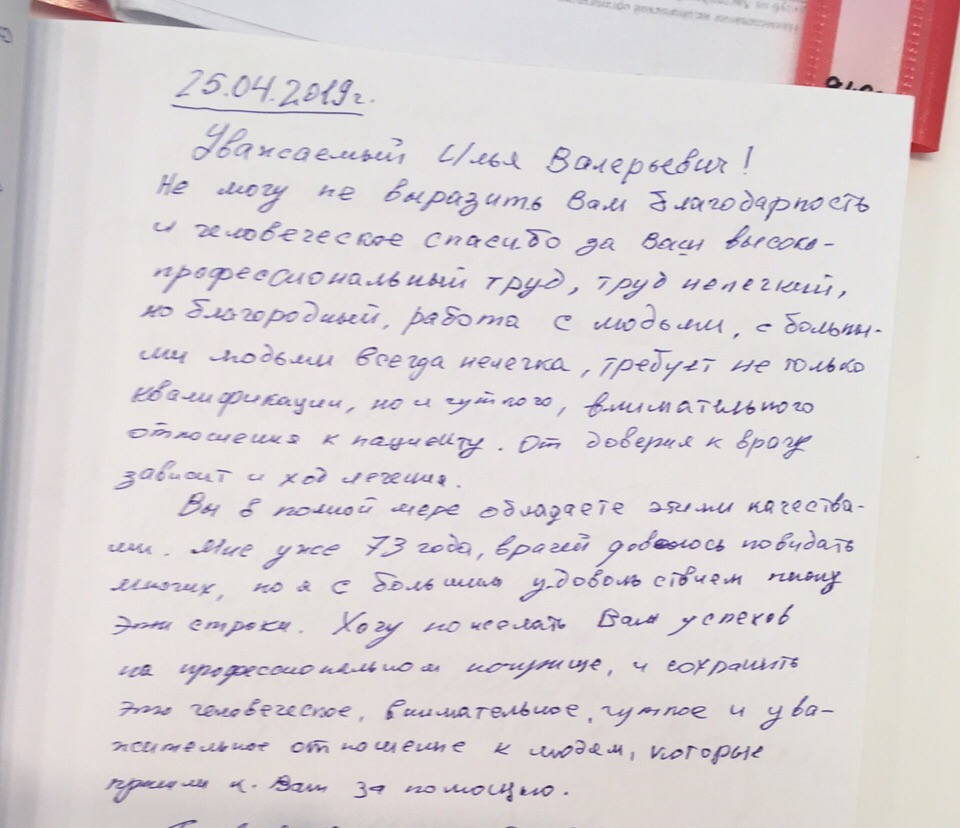 25.04.2019г.
Уважаемый Илья Валерьевич!
Не могу не выразить Вам благодарность
и человеческое спасибо за Ваш высоко-
профессиональный труд, труд нелегкий,
но благородный, работа с людьми, с больны-
ми людьми всегда нелегка, требует не только
квалификации, но и чуткого, внимательного
отношения к пациенту. От доверия к врачу
зависит и ход лечения.
Вы в полной мере обладаете этими качества-
ми. Мне уже 73 года, врачей довелось повидать
многих, но я с большим удовольствием пишу
эти строки. Хочу пожелать Вам успехов
на профессиональном поприще, и сохранить
это человеческое, внимательное, чуткое и ува-
жительное отношение к людям, которые
пришли к Вам за помощью.